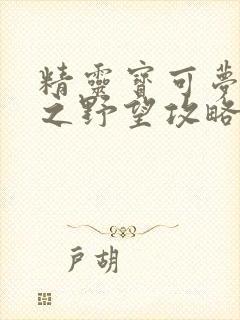 精靈寶可夢
之野望攻略
戶胡